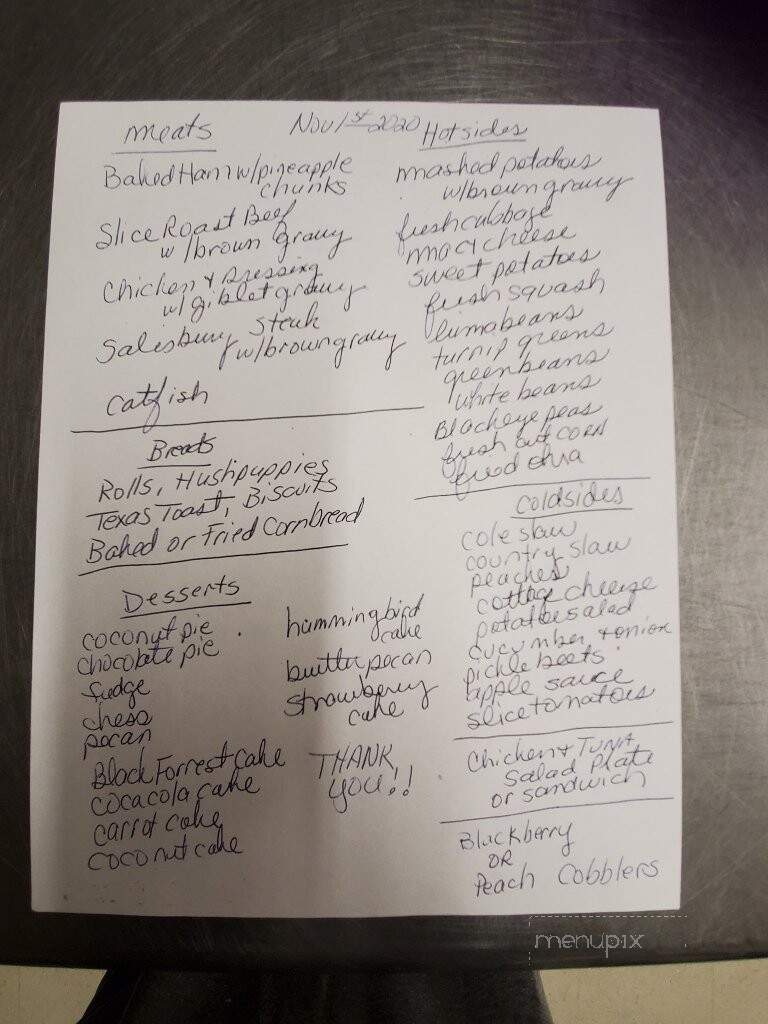 meats
Nov 1st 2020
Baked Ham w/pineapple
chunks
Slice Roast Beef
w/brown gravy
Chicken & Dressing
w/ giblet gravy
Salesbury steak
w/brown gravy
Catfish
Breads
Rolls, Hushpuppies
Texas Toast, Biscuits
Baked or Fried Cornbread
Desserts
coconut pie
chocolate pie
fudge
chess
pecan
Black Forrest cake
cocacola cake
carrot cake
coconut cake
hummingbird
cake
butter pecan
strawberry
cake
THANK
YOU!!
Hotsides
mashed potatoes
w/brown gravy
fresh cabbage
mac & cheese
sweet potatoes
fresh squash
lima beans
turnip greens
green beans
white beans
Blackeye peas
fresh cut corn
fried okra
Coldsides
cole slaw
country slaw
peaches
cottage cheese
potatoe salad
cucumber & onion
pickle beets
apple sauce
slice tomatoes
Chicken & TUNA
Salad Plate
or sandwich
Blackberry
OR
Peach Cobblers
menupix